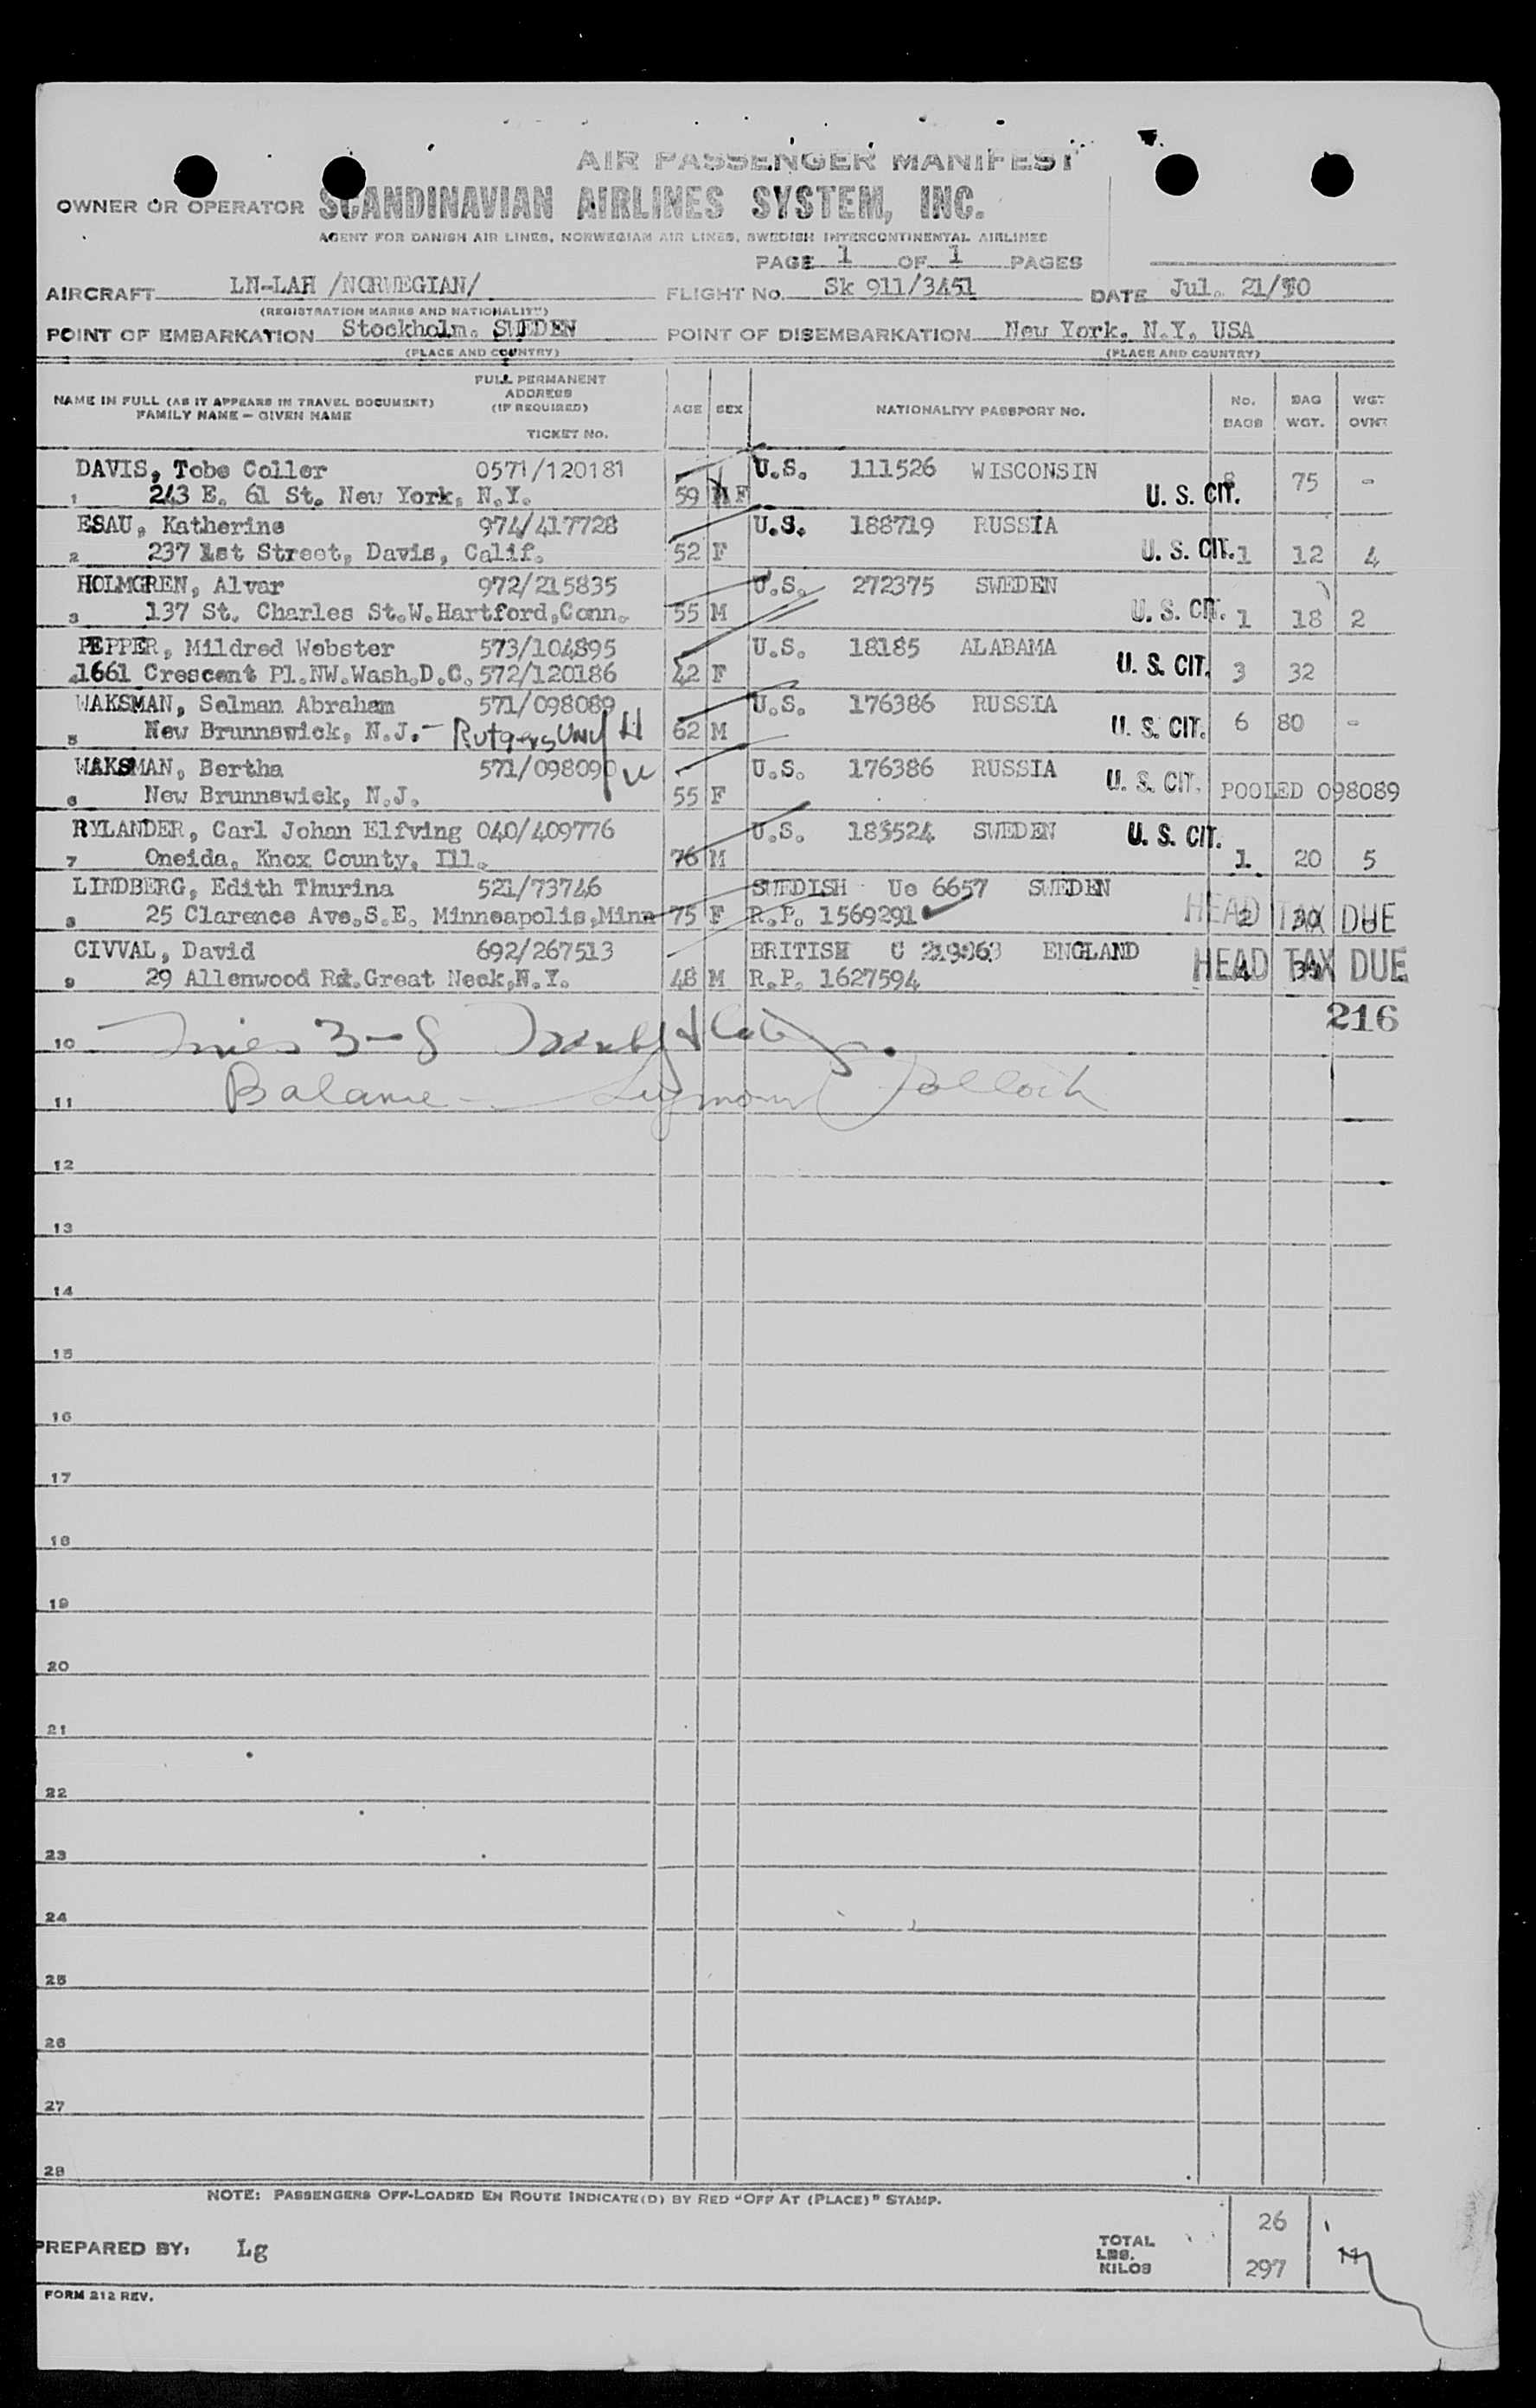 AIR PASSENGER MANIFEST
OWNER OR OPERATOR SCANDINAVIAN AIRLINES SYSTEM, INC.
AGENT FOR DANISH AIR LINES, NORWEGIAN AIR LINES, SWEDISH INTERCONTINENTAL AIRLINES
PAGE 1 OF 1 PAGES
AIRCRAFT LN-LAH /NORWEGIAN/ FLIGHT No. Sk 911/3451 DATE Jul. 21/50
(REGISTRATION MARKS AND NATIONALITY)
POINT OF EMBARKATION Stockholm, SWEDEN POINT OF DISEMBARKATION New York, N.Y. USA
(PLACE AND COUNTRY) (PLACE AND COUNTRY)
NAME IN FULL (AS IT APPEARS IN TRAVEL DOCUMENT) FAMILY NAME - GIVEN NAME FULL PERMANENT ADDRESS (IF REQUIRED) TICKET No. AGE SEX NATIONALITY PASSPORT NO. No. BAGS BAG WGT. WGT OVNT
DAVIS, Tobe Coller 0571/120181 U.S. 111526 WISCONSIN
1 243 E. 61 St. New York, N.Y. 59 F U. S. CIT. 8 75 -
ESAU, Katherine 974/417728 U.S. 188719 RUSSIA
2 237 1st Street, Davis, Calif. 52 F U. S. CIT. 1 12 4
HOLMGREN, Alvar 972/215835 U.S. 272375 SWEDEN
3 137 St. Charles St.W.Hartford,Conn. 55 M U. S. CIT. 1 18 2
PEPPER, Mildred Webster 573/104895 U.S. 18185 ALABAMA
4 1661 Crescent Pl.NW.Wash.D.C. 572/120186 42 F U. S. CIT. 3 32
WAKSMAN, Selman Abraham 571/098089 U.S. 176386 RUSSIA
5 New Brunnswick, N.J. - Rutgers Univ 62 M U. S. CIT. 6 80 -
WAKSMAN, Bertha 571/098090 U.S. 176386 RUSSIA
6 New Brunnswick, N.J. 55 F U. S. CIT. POOLED 098089
RYLANDER, Carl Johan Elfving 040/409776 U.S. 183524 SWEDEN
7 Oneida, Knox County, Ill. 76 M U. S. CIT. 1 20 5
LINDBERG, Edith Thurina 521/73746 SWEDISH Ue 6657 SWEDEN
8 25 Clarence Ave.S.E. Minneapolis,Minn 75 F R.P. 1569291 HEAD TAX DUE 2
CIVVAL, David 692/267513 BRITISH C 219963 ENGLAND
9 29 Allenwood Rd.Great Neck,N.Y. 48 M R.P. 1627594 HEAD TAX DUE 4
216
10 3-8
11 Balance - Seymour Pollock
12
13
14
15
16
17
18
19
20
21
22
23
24
25
26
27
28
NOTE: PASSENGERS OFF-LOADED EN ROUTE INDICATE(D) BY RED "OFF AT (PLACE)" STAMP.
PREPARED BY: Lg TOTAL LBS. KILOS 26 297 11
FORM 212 REV.